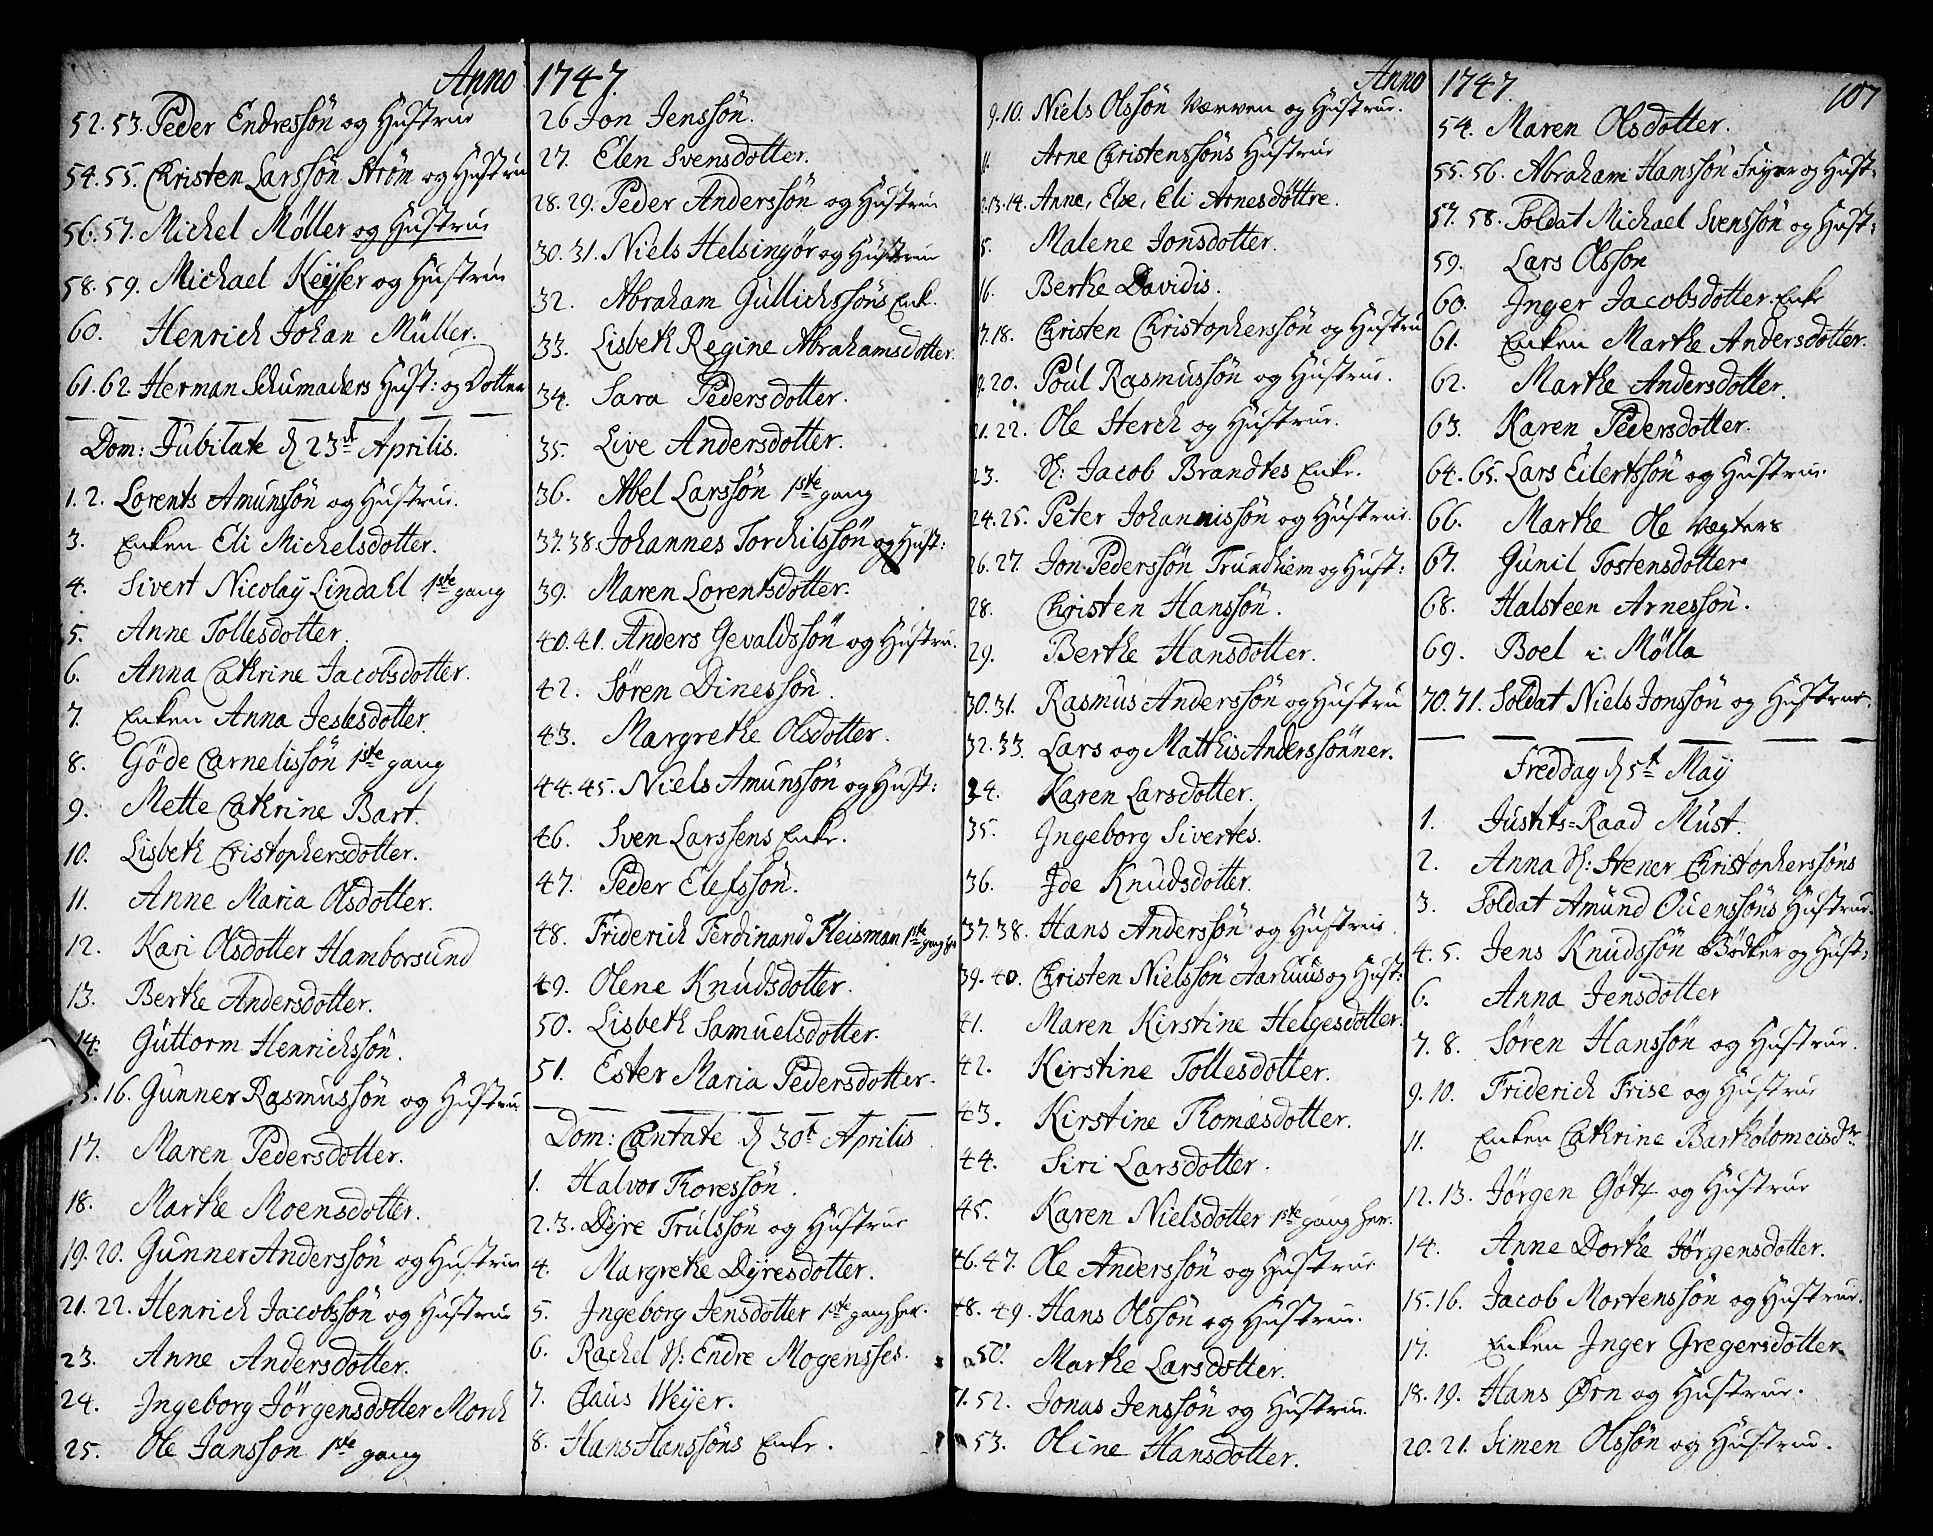 Anno 1747.
52. 53. Peder Endressön og Hustrue
54. 55. Christen Larssön Strøm og Hustru
56. 57. Michel Møller og Hustrue
58. 59. Michael Keyser og Hustrue
60. Henrich Johan Müller.
61. 62. Herman Schumachers Hust: og Dotter
Dom: Jubilate d 23de Aprilis.
1. 2. Lorents Amunssön og Hustrue.
3. Enken Eli Michelsdotter.
4. Sivert Nicolay Lindahl 1ste gang
5. Anne Tollesdotter.
6. Anna Cathrine Jacobsdotter.
7. Enken Anna Jeskesdotter.
8. Göde Carnelissön 1ste gang
9. Mette Cathrine Bart.
10. Lisbeth Cristophersdotter.
11. Anne Maria Olsdotter.
12. Kari Olsdotter Hamborsund
13. Berthe Andersdotter.
14. Guttorm Henrichssön.
15. 16. Gunner Rasmussön og Hustru
17. Maren Pedersdotter.
18. Marthe Moensdotter.
19. 20. Gunner Anderssön og Hustrue
21. 22. Henrich Jacobssön og Hustrue
23. Anne Andersdotter.
24. Ingeborg Jörgensdotter Morch
25. Ole Jansson 1ste gang
26 Jon Jenssön.
27. Elen Svensdotter.
28. 29. Peder Anderssön og Hustrue
30. 31. Niels Helsingör og Hustrue
32. Abraham Gullichssöns Enk.
33. Lisbeth Regine Abrahamsdotter.
34. Sara Pedersdotter.
35. Live Andersdotter.
36. Abel Larssön 1ste gang
37. 38. Johannes Torchilssön og Hust:
39. Maren Lorentsdotter.
40. 41. Anders Gevaldssön og Hustru.
42. Søren Dinessön.
43. Margrethe Olsdotter.
44. 45. Niels Amunssön og Hust:
46. Sven Larssens Enke.
47. Peder Elefssön.
48. Friderich Ferdinand Fleisman 1ste gang her
49. Olene Knudsdotter.
50. Lisbeth Samuelsdotter.
51. Ester Maria Pedersdotter.
Dom: Cantate d 30t Aprilis
1. Halvor Thoressön.
2. 3. Dyre Trulssön og Hustrue
4. Margrethe Dyresdotter.
5. Ingeborg Jensdotter 1ste gang her.
6. Rachel Sl: Endre Mogensses.
7. Claus Weyer.
8. Hans Hanssöns Enke.
Anno 1747. 107
9. 10. Niels Olssön Værven og Hustrue.
11. Arne Christenssöns Hustrue
12. 13. 14. Anne, Else, Eli Arnesdöttre.
15. Malene Jonsdotter.
16. Berthe Davidis.
17. 18. Christen Christopherssön og Hustru
19. 20. Poul Rasmussön og Hustrue.
21. 22. Ole Sterch og Hustrue.
23. Sl: Jacob Brandtes Enke.
24. 25. Peter Johannissön og Hustrue.
26. 27. Jon Pederssön Trundhiem og Hust:
28. Christen Hanssön.
29. Berthe Hansdotter.
30. 31. Rasmus Anderssön og Hustru
32. 33. Lars og Mathis Anderssönner.
34. Karen Larsdotter.
35. Ingeborg Sivertes.
36. Ide Knudsdotter.
37. 38. Hans Anderssön og Hustrue.
39. 40. Christen Nielssön Aarhuus og Hust:
41. Maren Kirstine Helgesdotter.
42. Kirstine Tollesdotter.
43. Kirstine Thomasdotter.
44. Siri Larsdotter.
45. Karen Nielsdotter 1ste gang her.
46. 47. Ole Anderssön og Hustrue
48. 49. Hans Olssön og Hustrue.
50. Marthe Larsdotter.
51. 52. Jonas Jenssön og Hustrue
53. Oline Hansdotter.
54. Maren Olsdotter.
55. 56. Abraham Hanssön og Hust:
57. 58. Soldat Michael Svenssön og Hust:
59. Lars Olsson
60. Inger Jacobsdotter Enke
61. Enken Marthe Andersdotter.
62. Marthe Andersdotter.
63. Karen Pedersdotter.
64. 65. Lars Eilertssön og Hustrue.
66. Marthe Ole Vegters
67. Gunil Tostensdotter
68. Halsteen Arnesson.
69. Boel i Mölla
70. 71. Soldat Niels Jonssön og Hustrue.
Freddag d 5t May
1. Justits=Raad Must.
2. Anna Sl: Stener Christopherssöns
3. Soldat Amund Ouenssöns Hustrue.
4. 5. Jens Knudssön Bödker og Hust:
6. Anna Jensdotter
7. 8. Søren Hanssön og Hustrue.
9. 10. Friderich Frise og Hustrue
11. Enken Cathrine Bartholomeisdr.
12. 13. Jörgen Götz og Hustrue
14. Anne Dorthe Jörgensdotter.
15. 16. Jacob Mortenssön og Hustrue.
17. Enken Inger Gregersdotter.
18. 19. Hans Ørn og Hustrue.
20. 21. Simen Olssön og Hustrue.